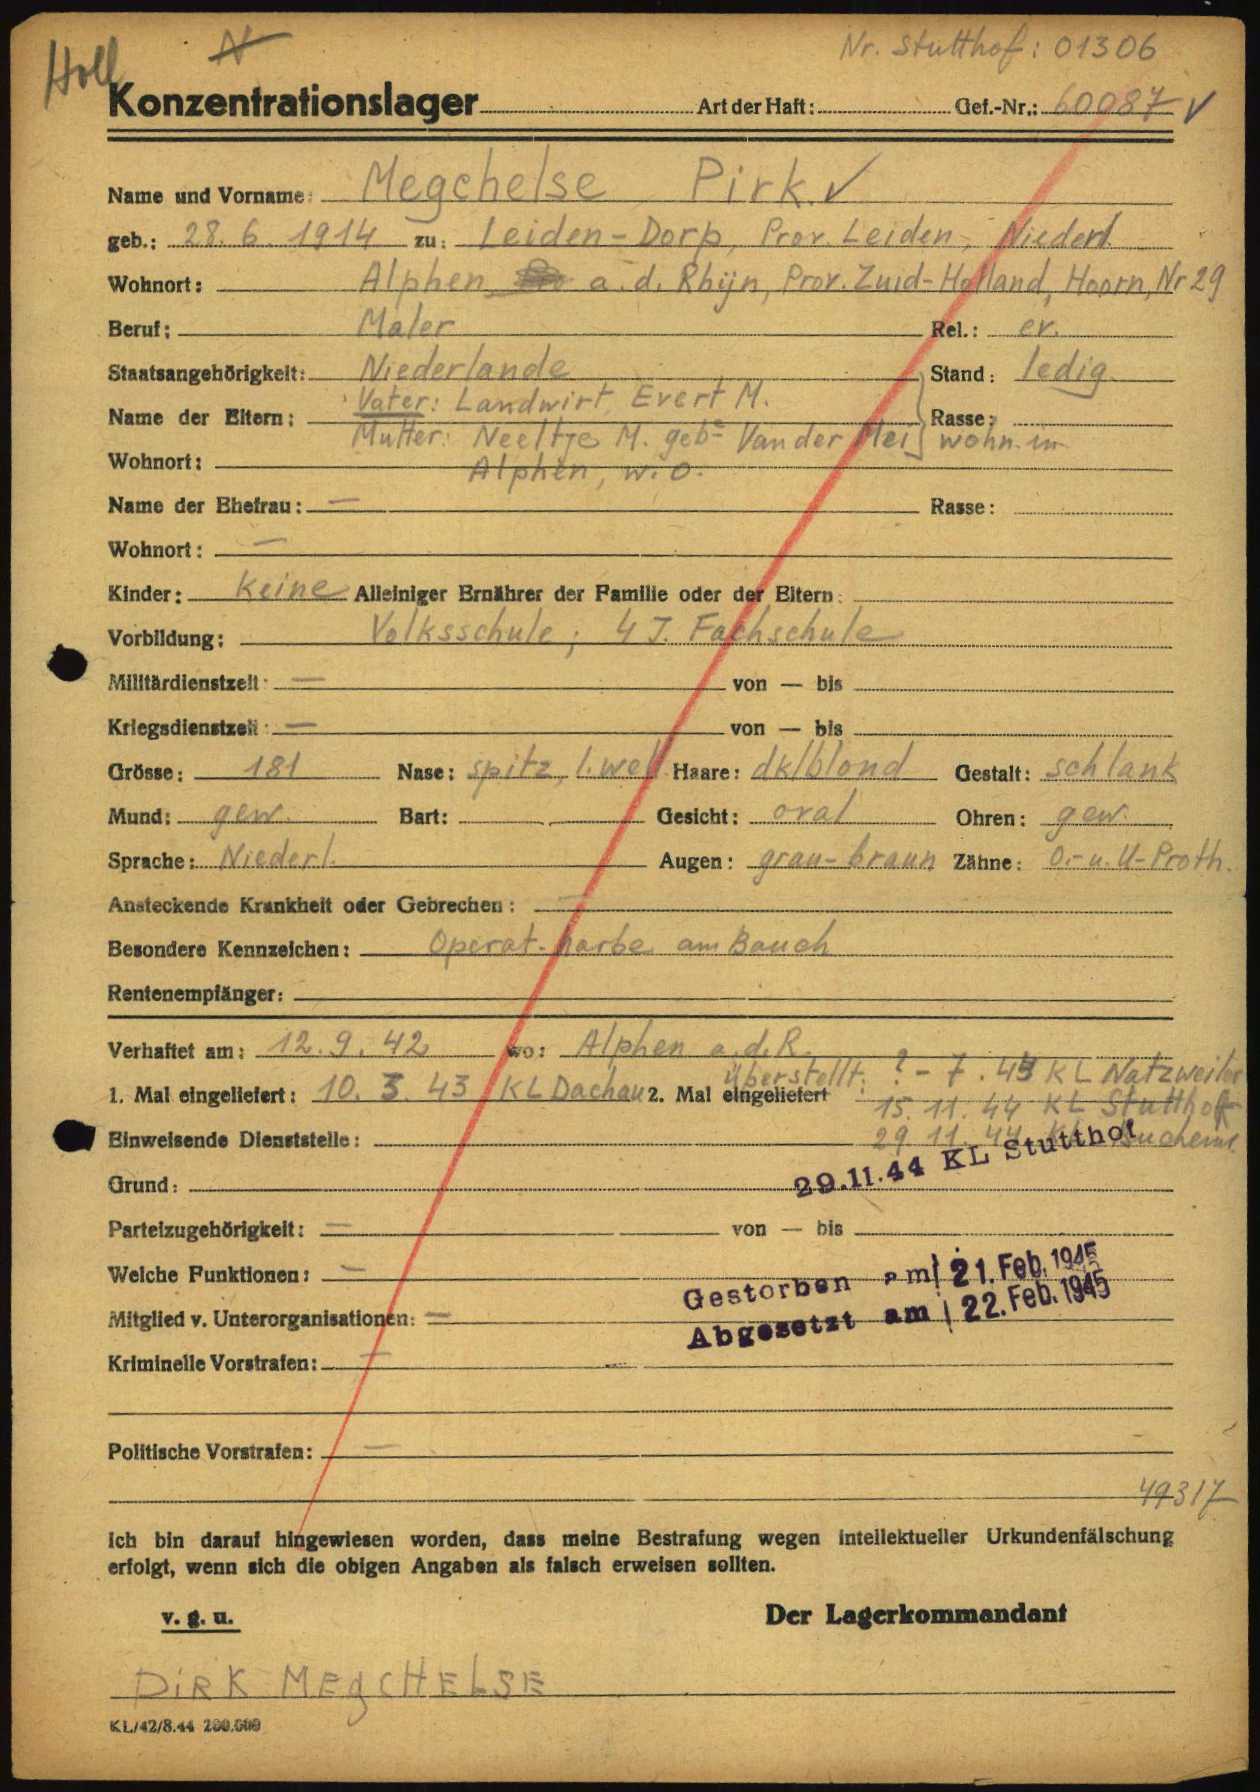 Holl N Nr. Stutthof: 01306
Konzentrationslager Art der Haft: Gef.-Nr.: 60087 ✓
Name und Vorname: Megchelse Pirk ✓
geb.: 28. 6. 1914 zu: Leiden-Dorp, Prov. Leiden, Niederl.
Wohnort: Alphen a. d. Rhijn, Prov. Zuid-Holland, Hoorn, Nr 29
Beruf: Maler Rel.: ev.
Staatsangehörigkeit: Niederlande Stand: ledig
Vater: Landwirt, Evert M.
Name der Eltern: Rasse:
Mutter: Neeltje M. geb. Van der Mei wohn. in
Wohnort: Alphen, w. o.
Name der Ehefrau: — Rasse:
Wohnort: —
Kinder: Keine Alleiniger Ernährer der Familie oder der Eltern:
Vorbildung: Volksschule, 4 J. Fachschule
Militärdienstzeit: — von — bis
Kriegsdienstzeit: — von — bis
Grösse: 181 Nase: spitz, l. wel. Haare: dklblond Gestalt: schlank
Mund: gew. Bart: Gesicht: oval Ohren: gew.
Sprache: Niederl. Augen: grau-braun Zähne: O.- u. U-Proth.
Ansteckende Krankheit oder Gebrechen: —
Besondere Kennzeichen: Operat.-narbe am Bauch
Rentenempfänger:
Verhaftet am: 12. 9. 42 wo: Alphen a. d. R.
überstellt: ? - 7. 43 KL Natzweiler
1. Mal eingeliefert: 10. 3. 43 KL Dachau 2. Mal eingeliefert: 15. 11. 44 KL Stutthof
Einweisende Dienststelle: 29 11. 44 KL Buchenw.
29.11.44 KL Stutthof
Grund:
Parteizugehörigkeit: — von — bis
Welche Funktionen: —
Gestorben am 21. Feb. 1945
Mitglied v. Unterorganisationen: —
Abgesetzt am 22. Feb. 1945
Kriminelle Vorstrafen: —
Politische Vorstrafen: —
49317
Ich bin darauf hingewiesen worden, dass meine Bestrafung wegen intellektueller Urkundenfälschung
erfolgt, wenn sich die obigen Angaben als falsch erweisen sollten.
v. g. u. Der Lagerkommandant
DiRK MEgCHELSE
KL/42/8.44 200.000